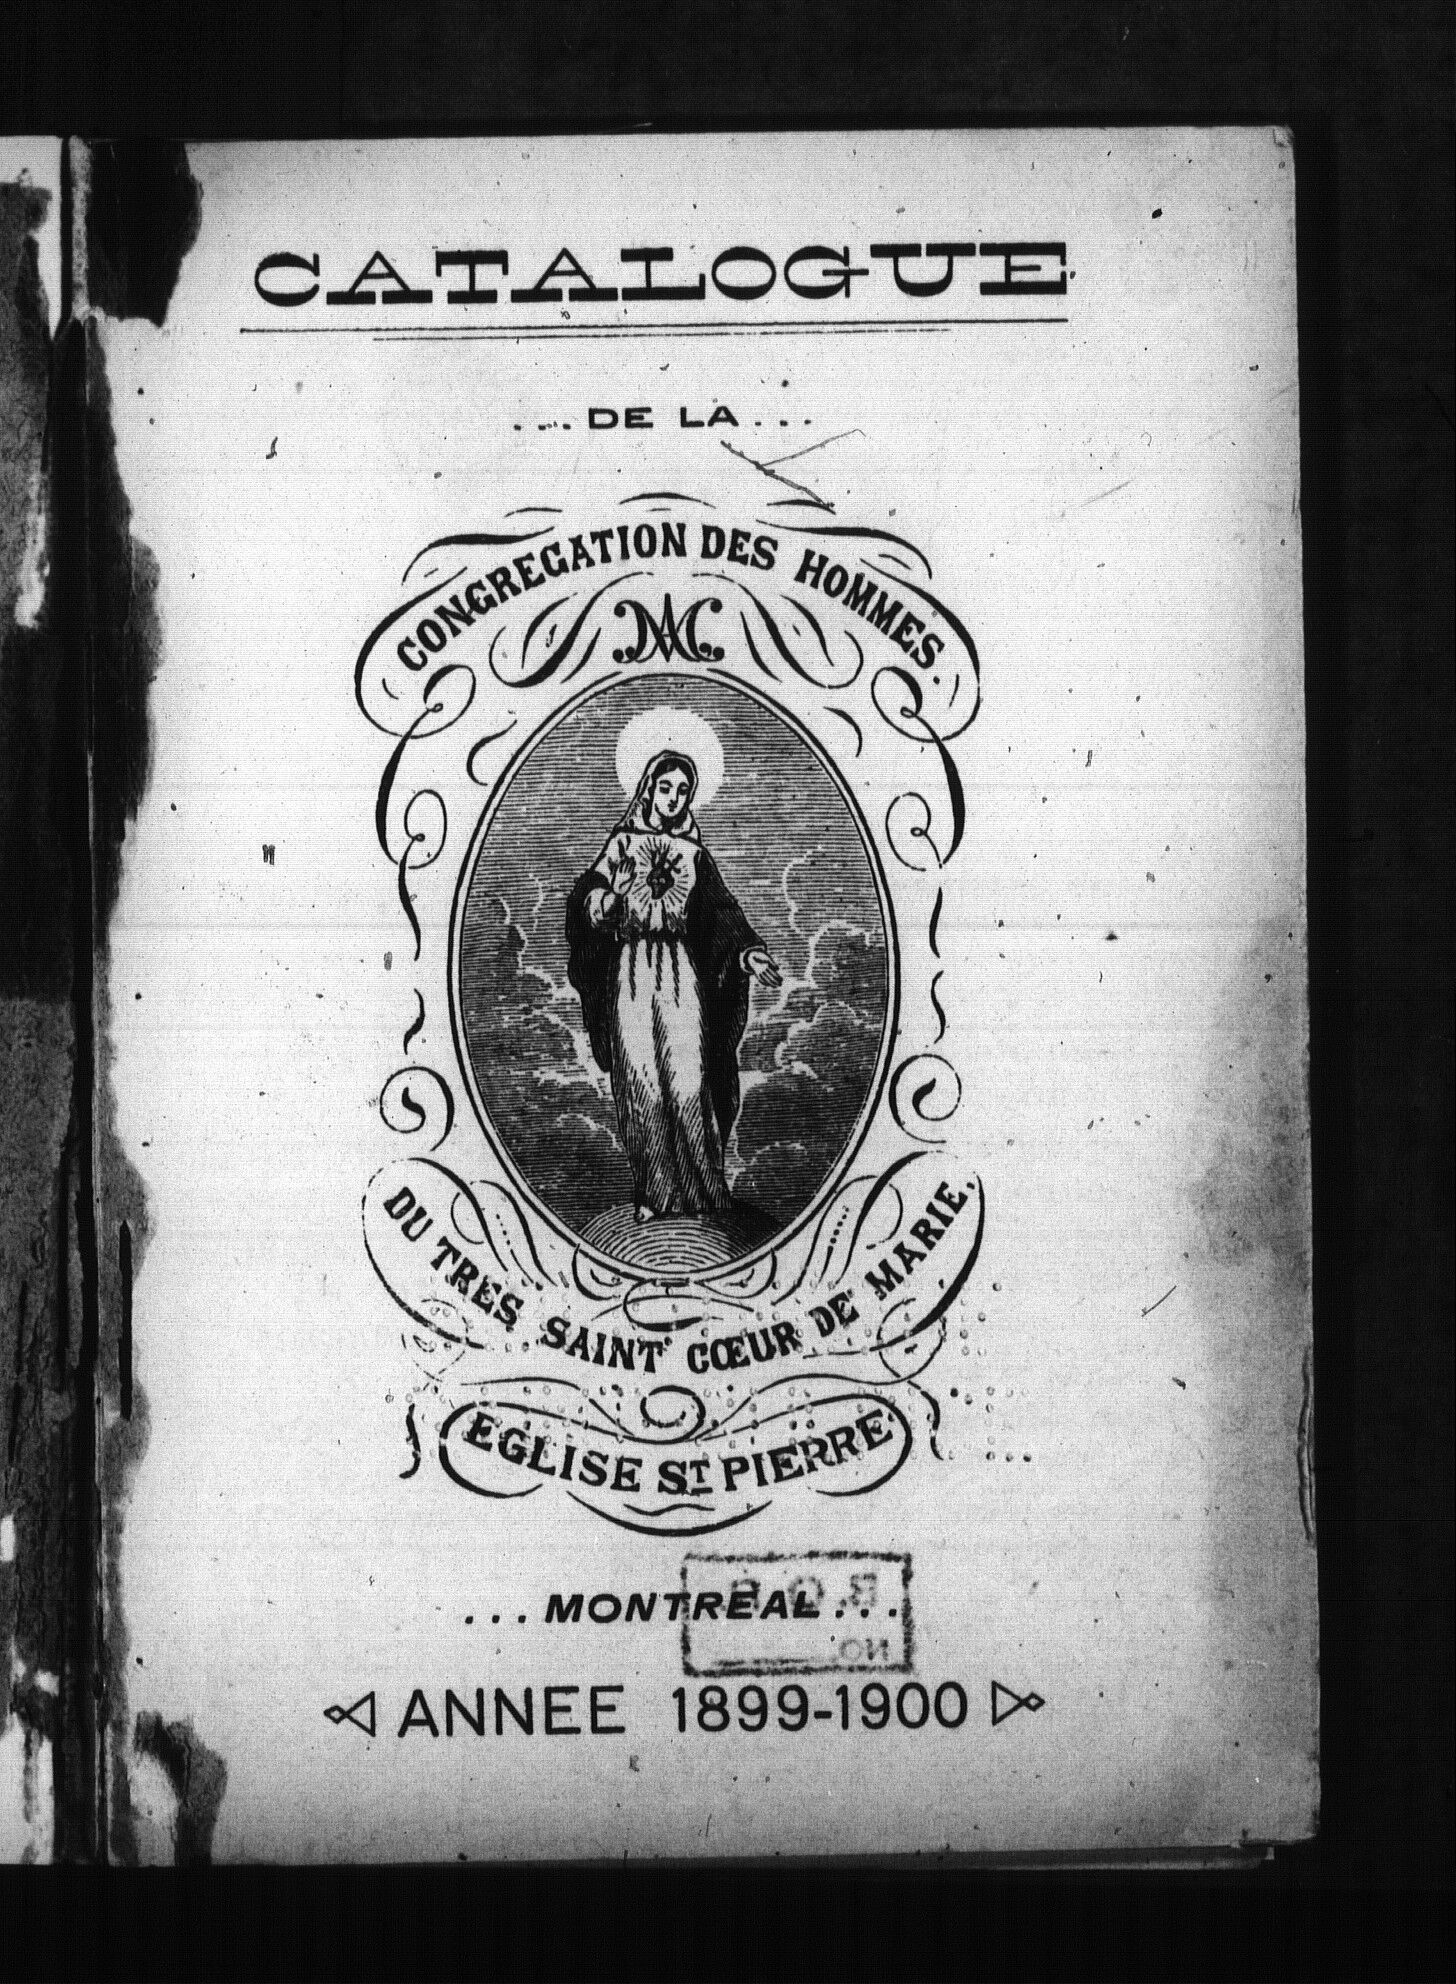 CATALOGUE
....DE LA...
CONGREGATION DES HOMMES.
DU TRES SAINT CŒUR DE MARIE.
EGLISE ST PIERRE
...MONTREAL...
NO
ANNEE 1899-1900